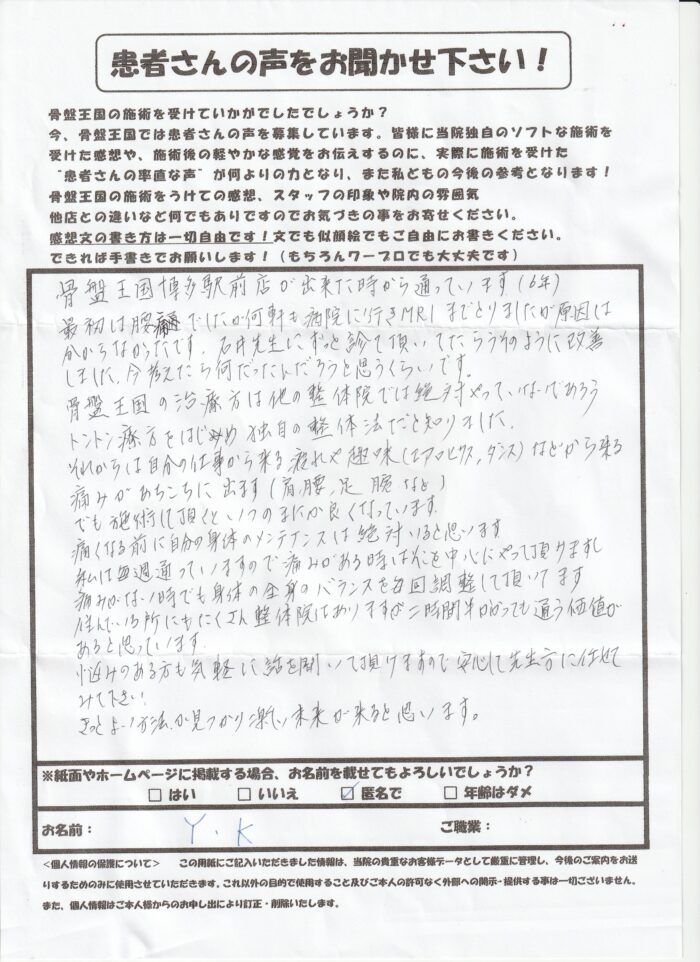 患者さんの声をお聞かせ下さい！
骨盤王国の施術を受けていかがでしたでしょうか？
今、骨盤王国では患者さんの声を募集しています。皆様に当院独自のソフトな施術を
受けた感想や、施術後の軽やかな感覚をお伝えするのに、実際に施術を受けた
“患者さんの率直な声”が何よりの力となり、また私どもの今後の参考となります！
骨盤王国の施術をうけての感想、スタッフの印象や院内の雰囲気
他店との違いなど何でもありですのでお気づきの事をお寄せください。
感想文の書き方は一切自由です！文でも似顔絵でもご自由にお書きください。
できれば手書きでお願いします！（もちろんワープロでも大丈夫です）
骨盤王国博多駅前店が出来た時から通っています（6年）
最初は腰痛でしたが何軒も病院に行きMRIまでとりましたが原因は
分からなかったです。石井先生にずっと診て頂いてたらうそのように改善
しました。今考えたら何だったんだろうと思うくらいです。
骨盤王国の治療方は他の整体院では絶対やっていないであろう
トントン療方をはじめ独自の整体法だと知りました。
それからは自分の仕事から来る疲れや趣味（エアロビクス,ダンス）などから来る
痛みがあちこちに出ます（肩,腰,足 腕など）
でも施術して頂くといつのまにか良くなっています。
痛くなる前に自分の身体のメンテナンスは絶対いると思います
私は毎週通っていますので痛みがある時はそこを中心にやって頂けますし
痛みがない時でも身体の全身のバランスを毎回調整して頂いてます
住んでいる所にもたくさん整体院はありますが二時間半かかっても通う価値が
あると思っています。
悩みのある方も気軽に話を聞いて頂けますので安心して先生方に任せて
みて下さい！
きっとよい方法が見つかり楽しい未来が来ると思います。
※紙面やホームページに掲載する場合、お名前を載せてもよろしいでしょうか？
□ はい □ いいえ ☑ 匿名で □ 年齢はダメ
お名前： Y.K ご職業：
＜個人情報の保護について＞ この用紙にご記入いただきました情報は、当院の貴重なお客様データとして厳重に管理し、今後のご案内をお送
りするためのみに使用させていただきます。これ以外の目的で使用すること及びご本人の許可なく外部への開示・提供する事は一切ございません。
また、個人情報はご本人様からのお申し出により訂正・削除いたします。